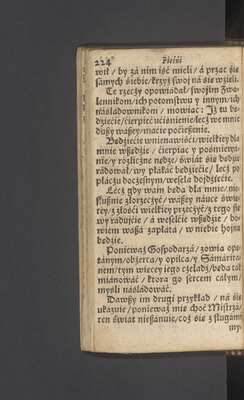 224 Pieśni
wił / by zá nim iść mieli / á prząc się
sámych siebie / krzyż swoj ná się wzieli.
Te rzeczy opowiádał / swoijm Zwo-
lennikom / ich potomstwu y innym / ich
náśládownikom / mowiąc: Iż tu bę-
dziecie / cierpieć vciśnienie / lecz we mnie
dufáć / macie pocieszenie.
Będziecie w nienawiści / wielkiey dla
mnie wszędzie / cierpiąc y pośmiewi-
nie y rozliczne nędze / świát się będzie
rádował / wy płákáć będziecie / lecz po
płáczu docześnym / wesela dojdziecie.
Lecz gdy wam będą dla mnie / nie-
słusznie złorzeczyć / wászey náuce świę-
tey / z złości wielkiey przeczyć / z tego się
wy ráduycie / á weselcie wszędzie / bo-
wiem wászá zapłátá / w niebie hoyna
będzie.
Ponieważ Gospodarzá / zowią opę-
tánym / obżercą / y opilcą / y Sámárita-
nem / tym więcey iego czeladź / będą tak
miánowáć / ktora go sercem cáłym /
myśli náśládowáć.
Dawszy im drugi przykład / ná się
vkázuie / ponieważ mię choć Mistrzá /
ten świát nieszánuie / coż się z sługámi
my